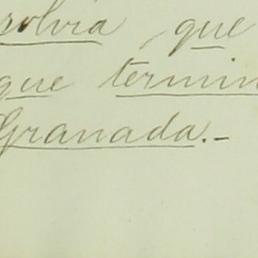 rolvia, que
que termin
Granada.-